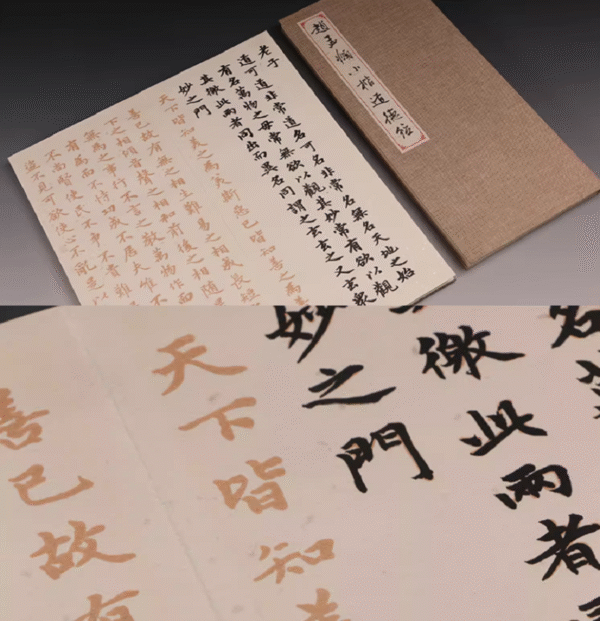 趙孟頫小楷道德經
老子
道可道非常道名可名非常名無名天地之始
有名萬物之母常無欲以觀其妙常有欲以觀
其徼此兩者同出而異名同謂之玄玄之又玄衆
妙之門
天下皆知美之為美斯惡已皆知善之為善
善已故有無之相生難易之相成長短
下之相傾音聲之相和前後之相隨
無為之事行不言之教萬物作而
有為而不恃功成不居夫惟不
不尚賢使民不爭不貴難
盜不見可欲使心不亂是以
名
徼此兩者
妙之門
天下皆知
善已故有